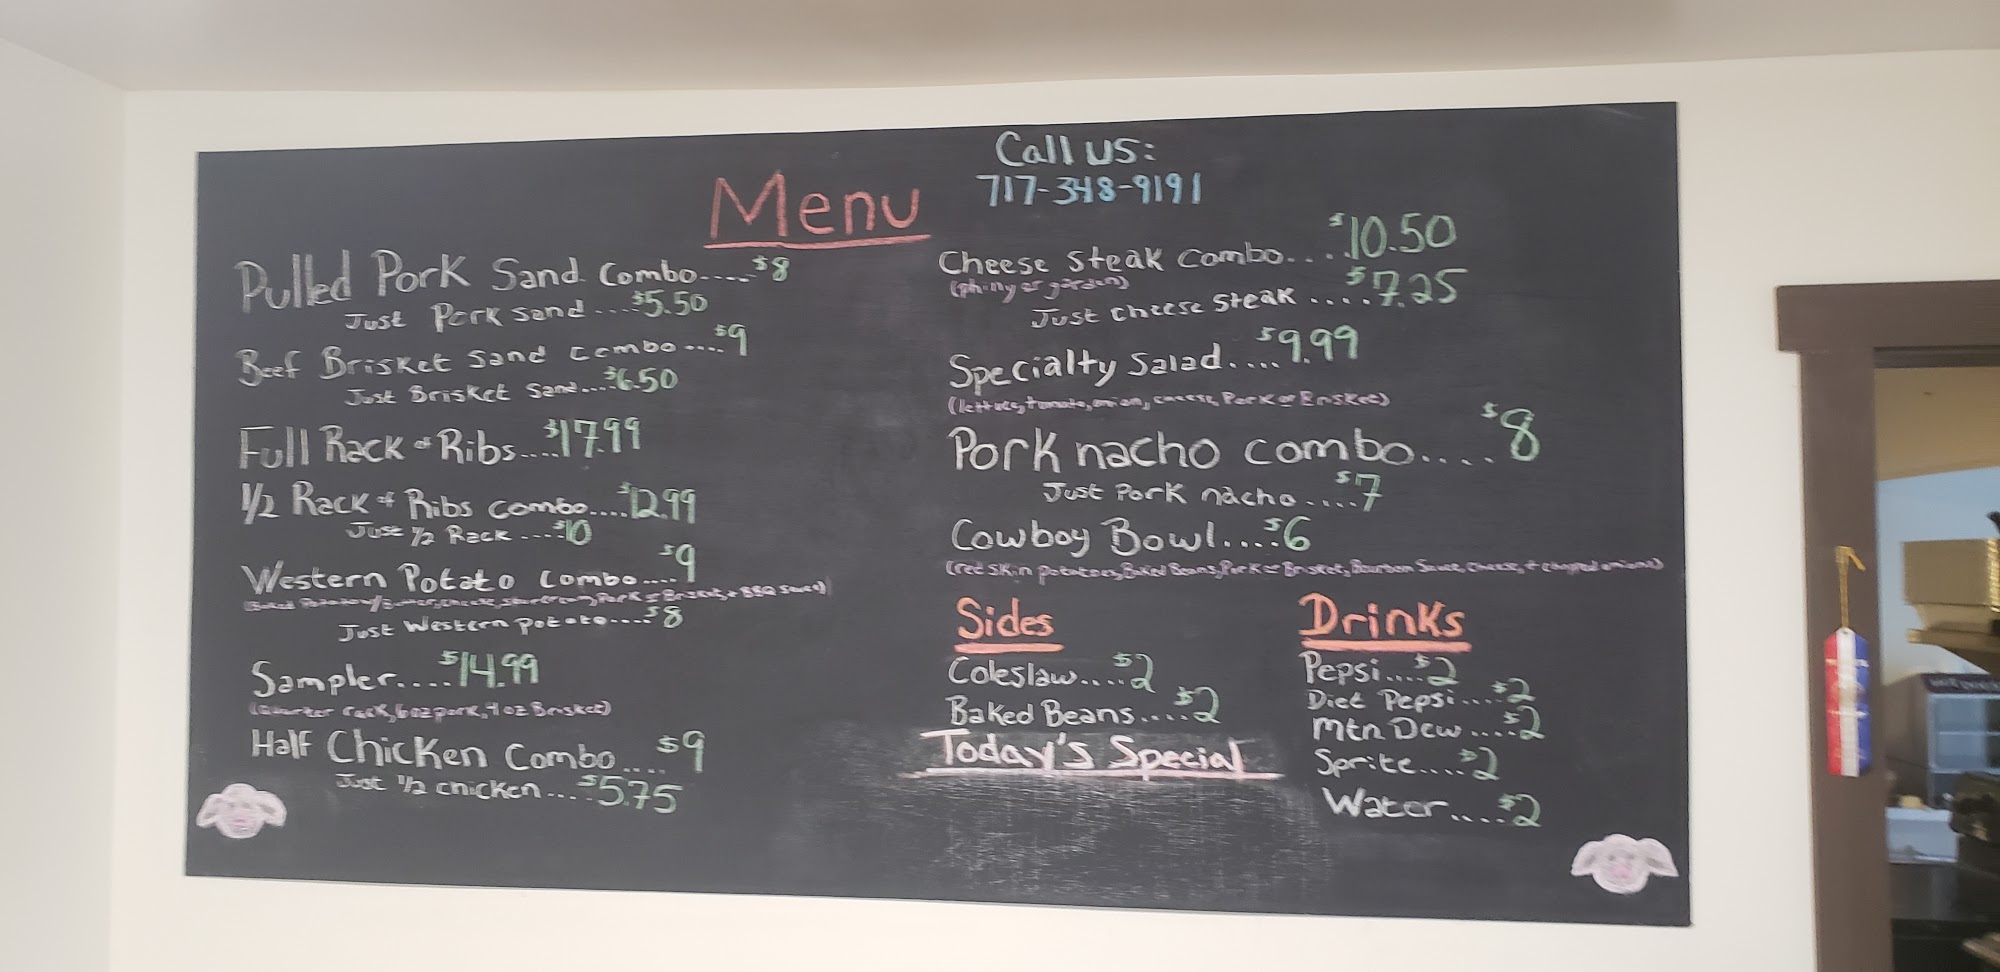 Menu
Call us:
717-348-9191
Pulled Pork Sand Combo....$8
Just Pork Sand....$5.50
Beef Brisket Sand Combo....$9
Just Brisket Sand....$6.50
Full Rack of Ribs....$17.99
1/2 Rack of Ribs Combo....$12.99
Just 1/2 Rack....$10
Western Potato Combo....$9
(Baked Potato w/ Butter, cheese, sour cream, Pork or Brisket, + BBQ Sauce)
Just Western potato....$8
Sampler....$14.99
(Quarter rack, 6oz pork, 4oz Brisket)
Half Chicken Combo....$9
Just 1/2 chicken....$5.75
Cheese Steak Combo....$10.50
(philly or garden)
Just cheese steak....$7.25
Specialty Salad....$9.99
(lettuce, tomato, onion, cheese, Pork or Brisket)
Pork nacho combo....$8
Just Pork nacho....$7
Cowboy Bowl....$6
(red skin potatoes, Baked Beans, Pork or Brisket, Bourbon Sauce, cheese, + chopped onions)
Sides
Coleslaw....$2
Baked Beans....$2
Today's Special
Drinks
Pepsi....$2
Diet Pepsi....$2
Mtn Dew....$2
Sprite....$2
Water....$2